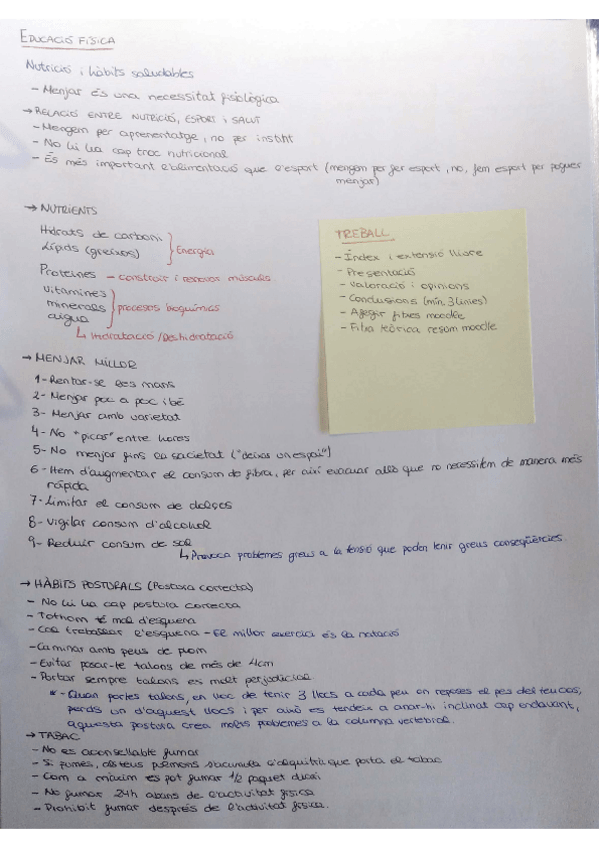 EDUCACIÓ FÍSICA
Nutrició i hàbits saludables
- Menjar és una necessitat fisiològica
→ RELACIÓ ENTRE NUTRICIÓ, ESPORT I SALUT
- Mengem per aprenentatge, no per instint
- No hi ha cap troc nutricional
- És més important l'alimentació que l'esport (mengem per fer esport, no, fem esport per poguer
menjar)
→ NUTRIENTS
Hidrats de carboni
Lípids (greixos)
Energia
Proteïnes - construir i renovar músculs
Vitamines
minerals
aigua
procesos bioquímics
↳ Hidratació/Deshidratació
TREBALL
- Índex i extensió lliure
- Presentació
- Valoració i opinions
- Conclusions (mín. 3 línies)
- Afegir fitxes moodle
- Fitxa teòrica resum moodle
→ MENJAR MILLOR
1- Rentar-se les mans
2- Menjar poc a poc i bé
3- Menjar amb varietat
4- No "picar" entre hores
5- No menjar fins la societat ("deixar un espai")
6- Hem d'augmentar el consum de fibra, per així evacuar allò que no necessitem de manera més
ràpida
7- Limitar el consum de dolços
8- Vigilar consum d'alcohol
9- Reduir consum de sal
↳ Provoca problemes greus a la tensió que poden tenir greus conseqüències.
→ HÀBITS POSTURALS (Postura correcta)
- No hi ha cap postura correcta
- Tothom té mal d'esquena
- Cal treballar l'esquena - El millor exercici és la natació
- Caminar amb peus de plom
- Evitar posar-te talons de més de 4cm
- Portar sempre talons es molt perjudicial
* - Quan portes talons, en lloc de tenir 3 llocs a cada peu on reposes el pes del teu cos,
perds un d'aquest llocs i per això es tendeix a anar-hi inclinat cap endavant,
aquesta postura crea molts problemes a la columna vertebral.
→ TABAC
- No es aconsellable fumar
- Si fumes, als teus pulmons s'acumula l'alquitrà que porta el tabac
- Com a màxim es pot fumar 1/2 paquet diari
- No fumar 24h abans de l'activitat física
- Prohibit fumar després de l'activitat física.